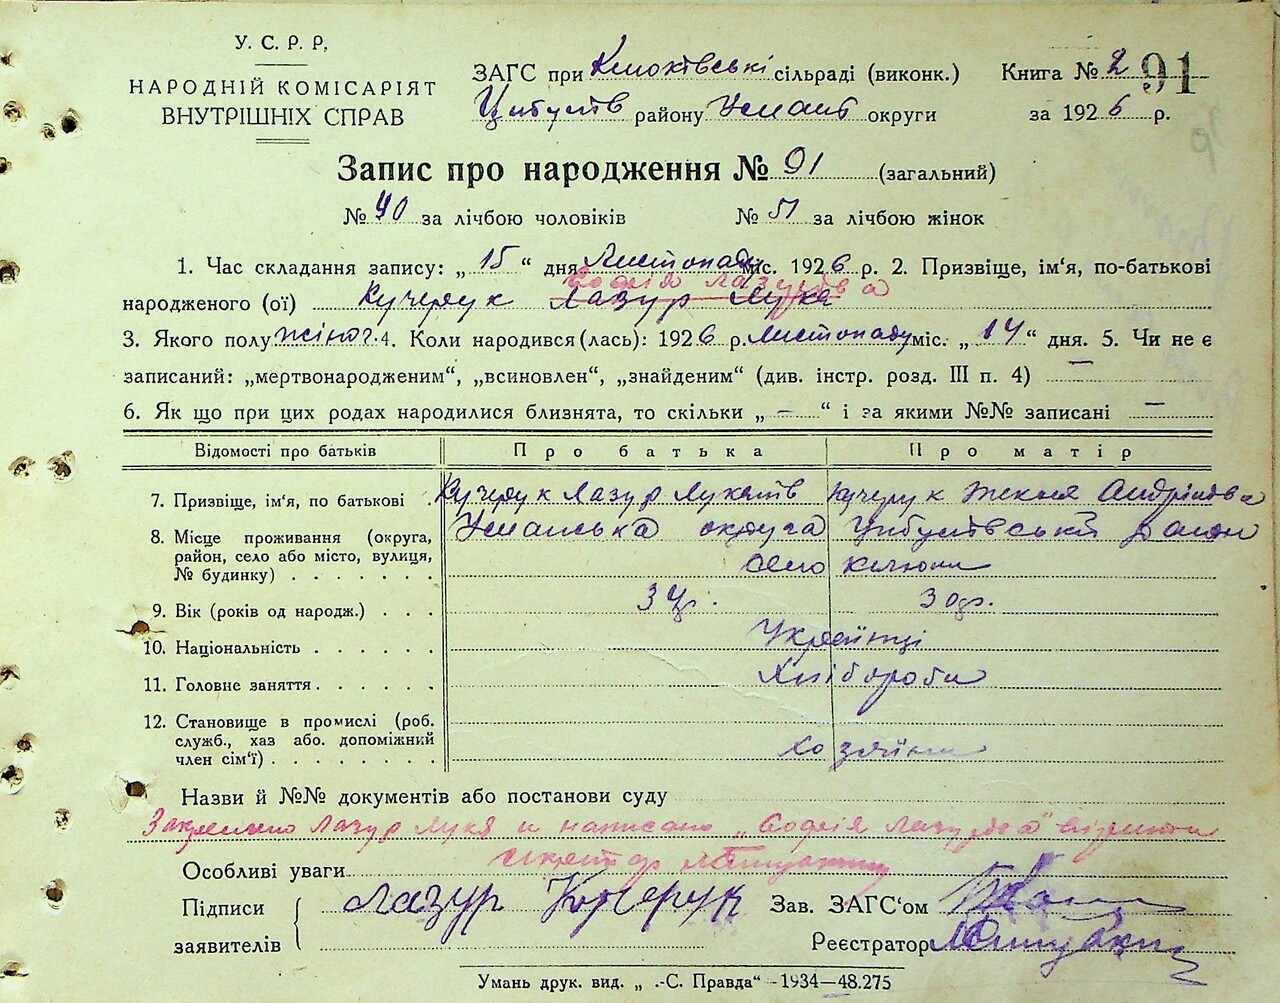 У. С. Р. Р.
НАРОДНІЙ КОМІСАРІЯТ
ВНУТРІШНІХ СПРАВ
ЗАГС при сільраді (виконк.) Книга № 2 91
району округи за 1926 р.
Запис про народження № 91 (загальний)
№ 40 за лічбою чоловіків № 51 за лічбою жінок
1. Час складання запису: „ 15 “ дня Листопаду міс. 1926 р. 2. Призвіще, ім'я, по-батькові
Софія Лазурова
народженого (ої) Кучерук Лазур Лука
3. Якого полу жіноч. 4. Коли народився (лась): 1926 р. Листопаду міс. „ 14 “ дня. 5. Чи не є
записаний: „мертвонародженим“, „всиновлен“, „знайденим“ (див. інстр. розд. III п. 4) —
6. Як що при цих родах народилися близнята, то скільки „ — “ і за якими №№ записані —
Відомості про батьків Про батька Про матір
7. Призвіще, ім'я, по батькові Кучерук Лазур Кучерук
8. Місце проживання (округа, Уманська округа район
район, село або місто, вулиця,
№ будинку) село
9. Вік (років од народж.) 30
10. Національність Українці
11. Головне заняття Хлібороби
12. Становище в промислі (роб.
служб., хаз або. допоміжний
член сім'ї) Хозяїни
Назви й №№ документів або постанови суду
Закреслено Лазур Лука и написано „Софія
Особливі уваги
Підписи Лазур Кучерук Зав. ЗАГС'ом
заявителів Реєстратор
Умань друк. вид. „ .-С. Правда“ -1934—48.275